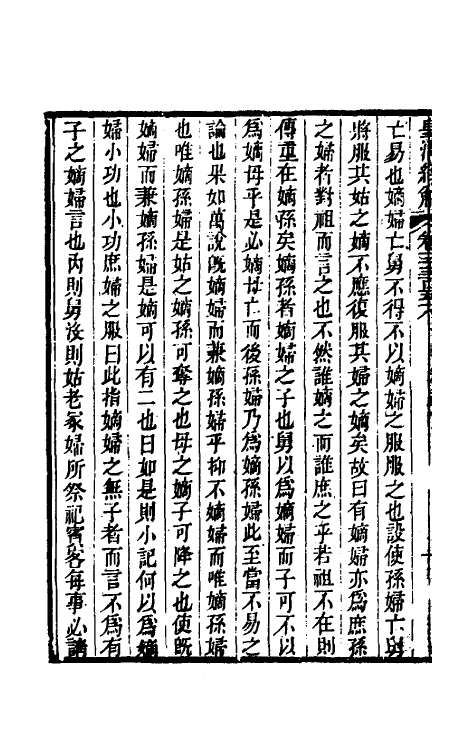 亡易也嫡婦亡舅不得不以嫡婦之服服之也設使孫婦亡舅
將服其姑之嫡不應復服其婦之嫡矣故曰有嫡婦亦爲庶孫
之婦者對祖而言之也不然誰嫡之而誰庶之乎若祖不在則
傳重在嫡孫矣嫡孫者嫡婦之子也舅以爲嫡婦而子可不以
爲嫡母乎是必嫡母亡而後孫婦乃爲嫡孫婦此至當不易之
論也果如萬說旣嫡婦而兼嫡孫婦乎抑不嫡婦而唯嫡孫婦
也唯嫡孫婦是姑之嫡孫可奪之也母之嫡子可降之也使旣
嫡婦而兼嫡孫婦是嫡可以有二也曰如是則小記何以爲嫡
婦小功也小功庶婦之服曰此指嫡婦之無子者而言不爲有
子之嫡婦言也丙則舅沒則姑老冢婦所祭祀賓客每事必請